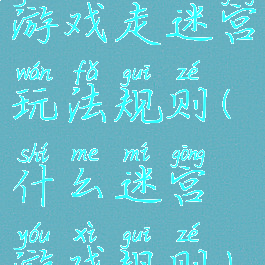 游戏走迷营
wán fǎ guī zé
玩法规则(
shí me mí gōng
什么迷营
yóu xì guī zé
游戏规则)